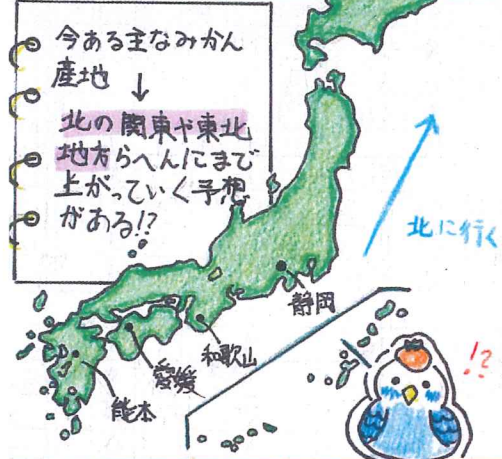 今ある主なみかん
産地
↓
北の関東や東北
地方らへんにまで
上がっていく予想
がある!?
北に行く
静岡
和歌山
愛媛
熊本
!?